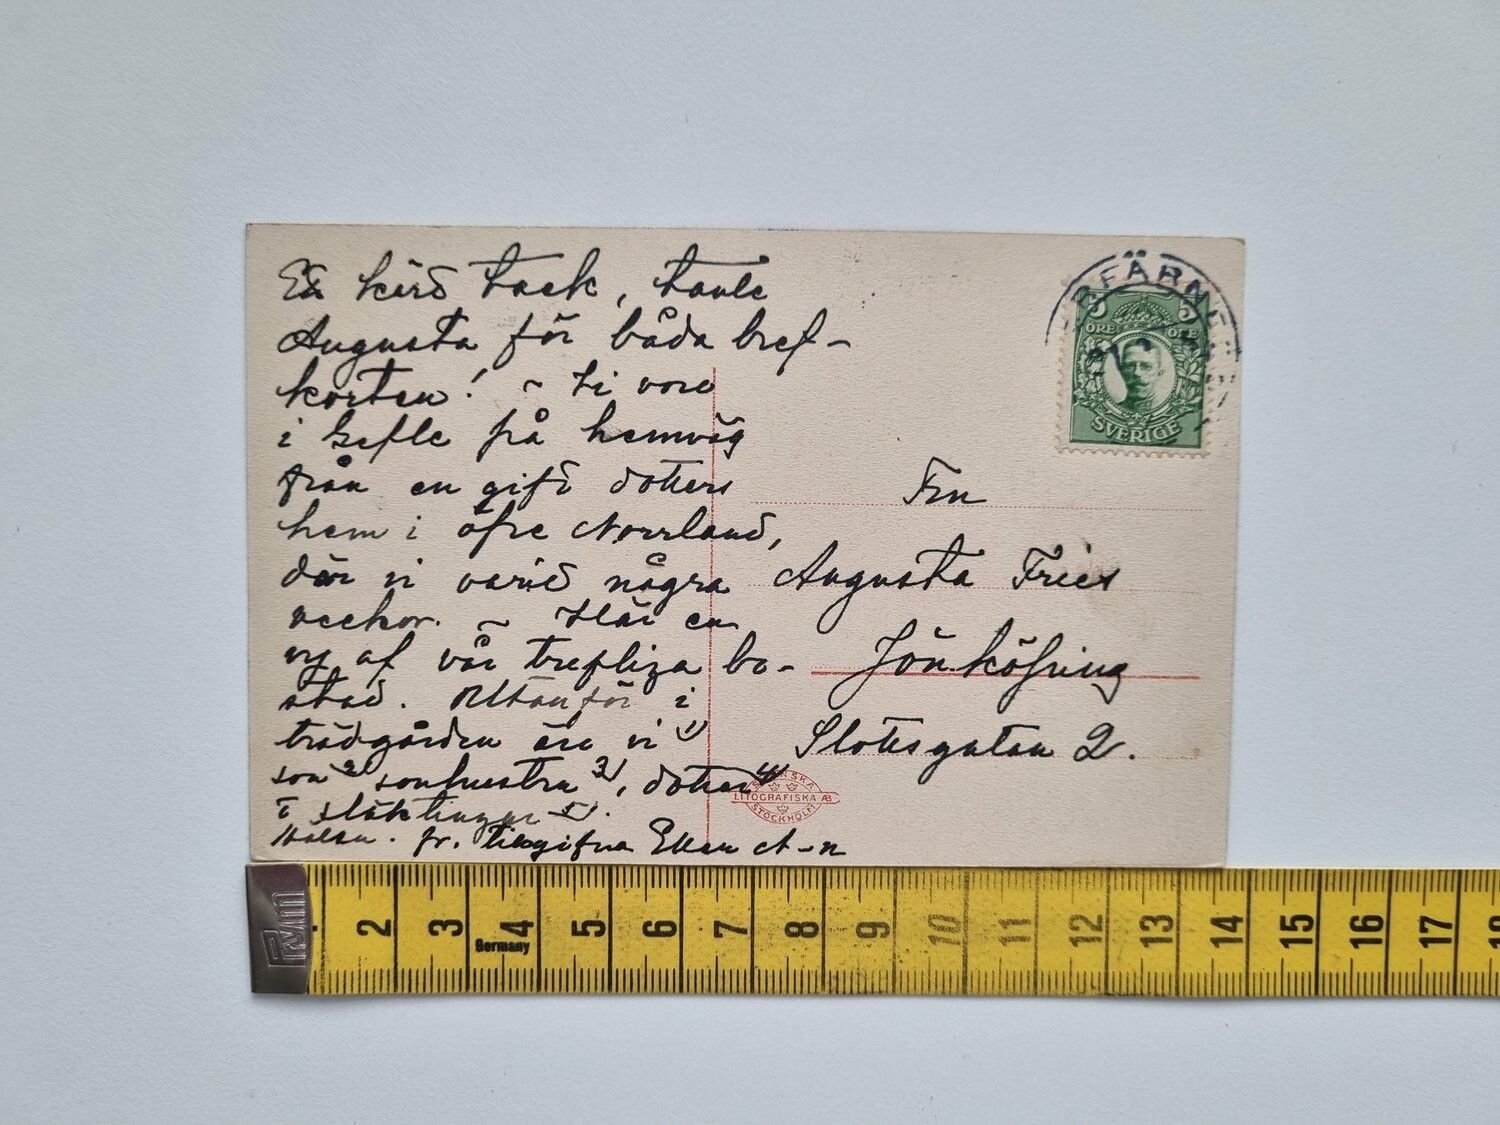 En kärd tack, tante
Augusta för båda bref-
korten! ~ Vi voro
i Gefle på hemväg
från en gift dotters
hem i öfre Norrland,
där vi varid några
veckor. ~ Här en
vy af vår trefliga bo-
stad. Utanför i
trädgården äro vi 1)
son 2) sonhustru 3), dotter 4)
o släktingar 5).
Hälsn. fr. tillgifna Ellen A-n
Fru
Augusta Fries
Jönköping
Slottsgatan 2.
5 5
ÖRE ÖRE
SVERIGE
SVENSKA
LITOGRAFISKA AB
STOCKHOLM
Prym
2 3 4 5 6 7 8 9 10 11 12 13 14 15 16 17 18
Germany